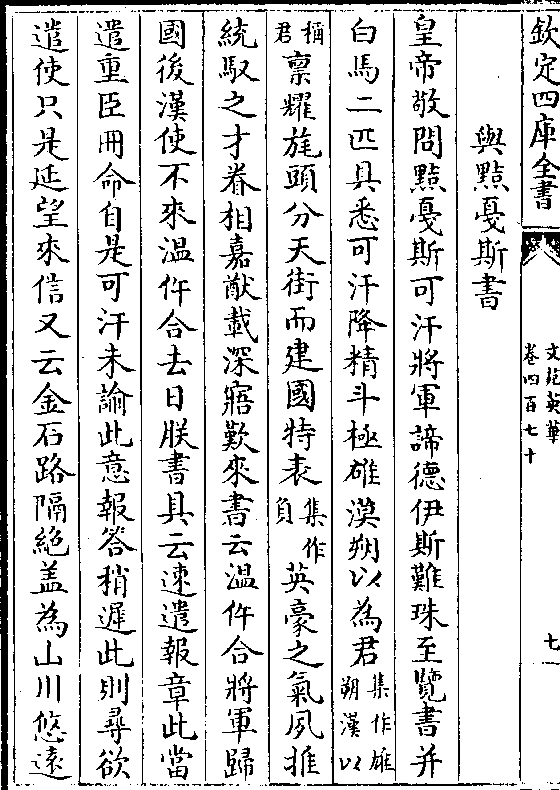 欽定四庫全書
文苑英華
卷四百七十
七
與黠戛斯書
皇帝敬問黠戛斯可汗將軍諦德伊斯難珠至覽書并
白馬二匹具悉可汗降精斗極雄漠朔以為君集作雄朔漠以
稱君稟耀旄頭分天街而建國特表集作負英豪之氣夙推
統馭之才眷相嘉猷載深寤歎來書云溫仵合將軍歸
國後漢使不來溫仵合去日朕書具云速遣報章此當
遣重臣冊命自是可汗未諭此意報答稍遲此則尋欲
遣使只是延望來信又云金石路隔絕盖為山川悠遠